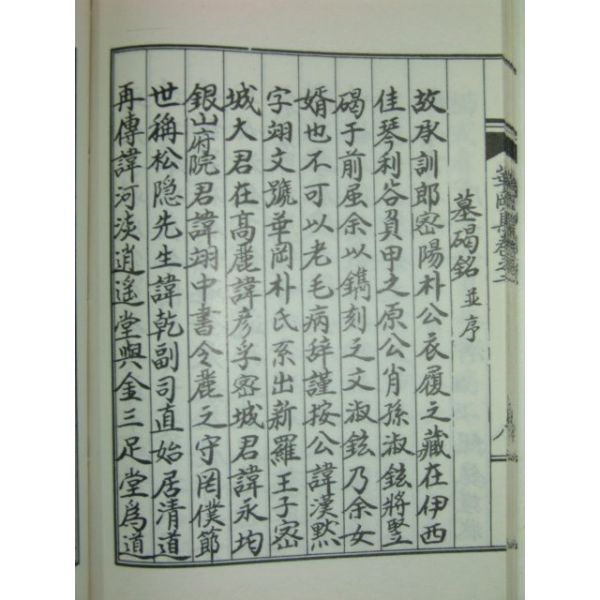 墓碣銘 並序
故承訓郎密陽朴公衣履之藏在伊西
佳琴利谷負甲之原公肖孫淑鉉將竪
碣于前屈余以鐫刻之文淑鉉乃余女
婿也不可以老毛病辞謹按公諱漢黙
字翊文號華岡朴氏系出新羅王子密
城大君在高麗諱彦孚密城君諱永均
銀山府院君諱翊中書令麗之守罔僕節
世稱松隐先生諱乾副司直始居清道
再傳諱河淡逍遙堂與金三足堂爲道
華岡集卷之二